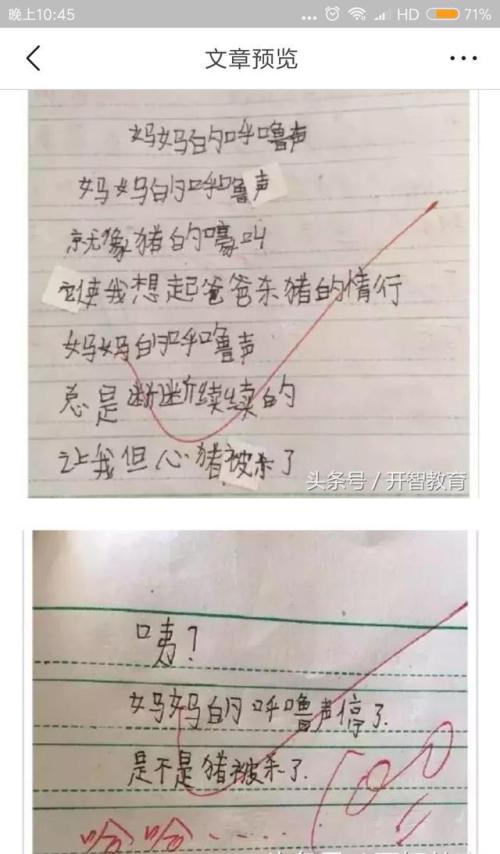 晚上10:45
... HD 71%
文章预览
妈妈的呼噜声
妈妈的呼噜声
就像猪的嚎叫
它使我想起爸爸杀猪的情行
妈妈的呼噜声
总是断断续续的
让我但心猪被杀了
头条号 / 开智教育
咦?
妈妈的呼噜声停了.
是不是猪被杀了.
哈哈......